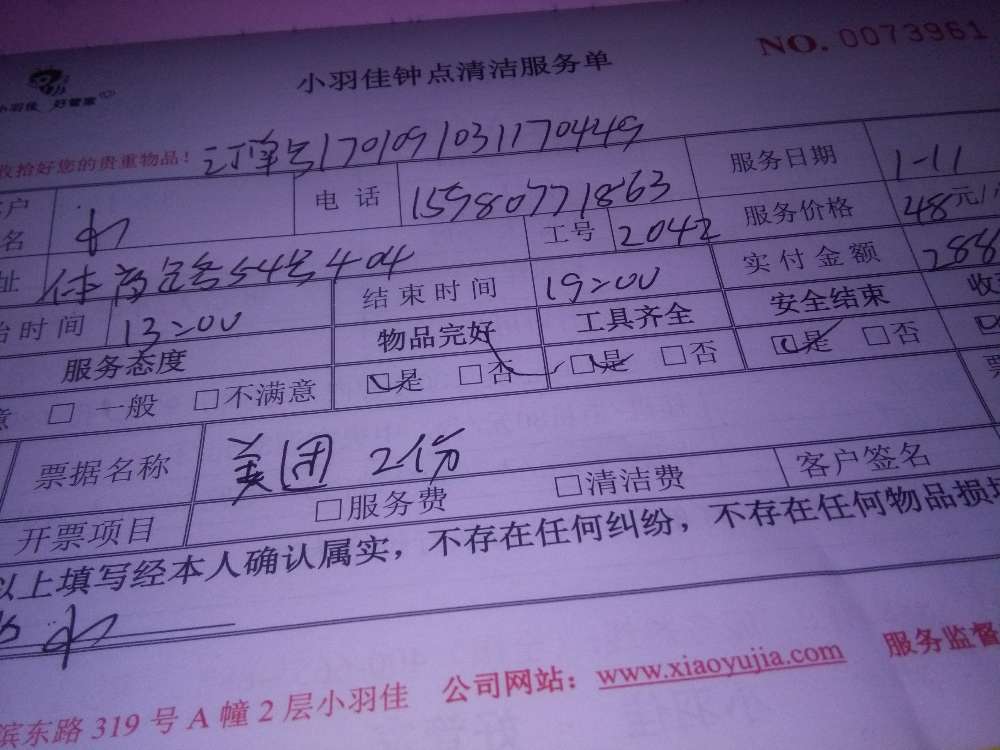 小羽佳 好管家
小羽佳钟点清洁服务单
NO. 0073961
收拾好您的贵重物品！ 订单号170109103117044449
户名 电话 15980771863 服务日期 1-11
址 体育路54号404 工号 2042 服务价格 48元/
始时间 13:00 结束时间 19:00 实付金额 288
服务态度 物品完好 工具齐全 安全结束 收
意 □一般 □不满意 □是 □否 □是 □否 □是 □否
票据名称 美团 2份 票
开票项目 □服务费 □清洁费 客户签名
以上填写经本人确认属实，不存在任何纠纷，不存在任何物品损
滨东路 319 号 A 幢 2 层小羽佳 公司网站：www.xiaoyujia.com 服务监督